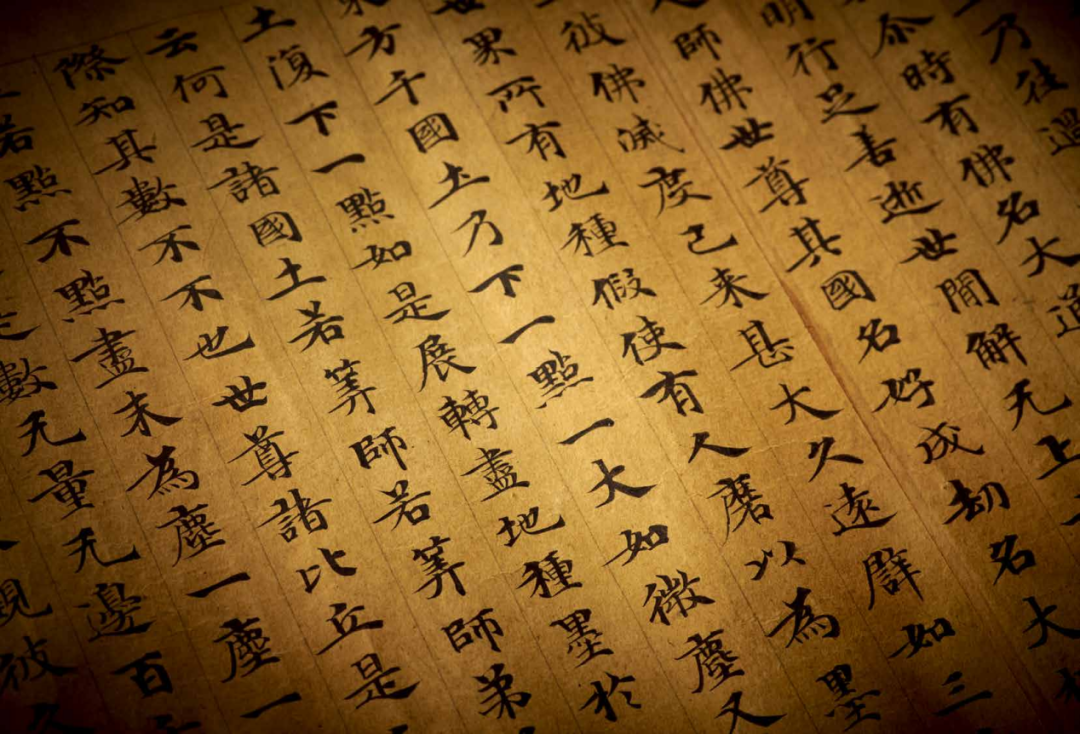 乃往過
尒時有佛名大通
明行足善逝世間解无上
師佛世尊其國名好成劫名大
彼佛滅度已来甚大久遠辟如三
世界所有地種假使有人磨以為墨
東方千國土乃下一點一大如微塵又
土復下一點如是展轉盡地種墨於
云何是諸國土若筭師若筭師弟
際知其數不不也世尊諸比丘是
若點不點盡末為塵一塵一
數无量无邊百
觀彼